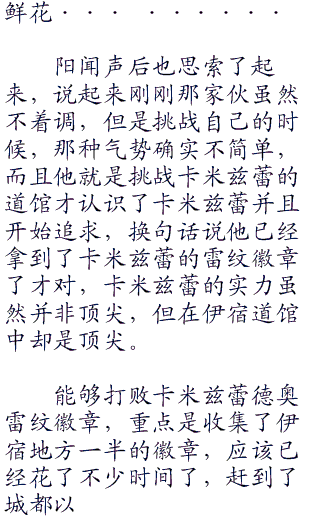 鲜花··· ······
阳闻声后也思索了起
来，说起来刚刚那家伙虽然
不着调，但是挑战自己的时
候，那种气势确实不简单，
而且他就是挑战卡米兹蕾的
道馆才认识了卡米兹蕾并且
开始追求，换句话说他已经
拿到了卡米兹蕾的雷纹徽章
了才对，卡米兹蕾的实力虽
然并非顶尖，但在伊宿道馆
中却是顶尖。
能够打败卡米兹蕾德奥
雷纹徽章，重点是收集了伊
宿地方一半的徽章，应该已
经花了不少时间了，赶到了
城都以